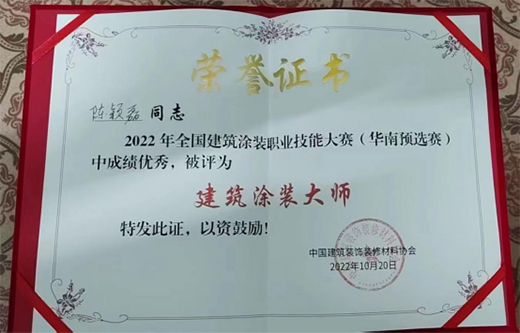 荣誉证书
陈颖磊 同志
2022年全国建筑涂装职业技能大赛（华南预选赛）
中成绩优秀，被评为
建筑涂装大师
特发此证，以资鼓励！
中国建筑装饰装修材料协会
2022年10月20日